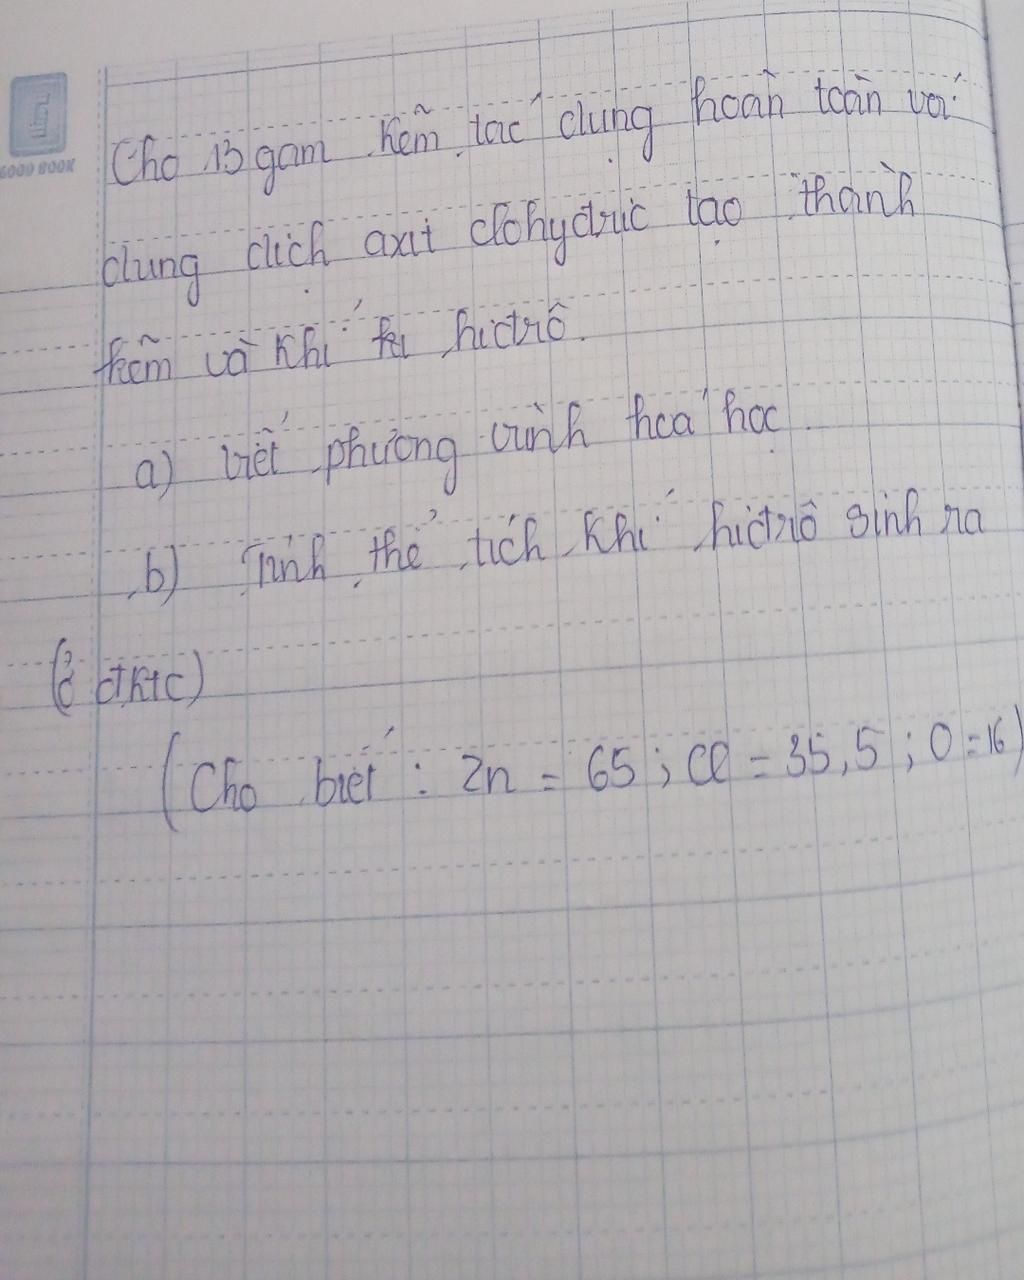 GOOD BOOK
Cho 13 gam kẽm tác dụng hoàn toàn với
dung dịch axit clohyđric tạo thành
kẽm và khí hiđrô.
a) viết phương trình hoá học.
b) Tính thể tích khí hiđrô sinh ra
(ở đktc)
(Cho biết : Zn = 65 ; Cl = 35,5 ; O = 16)